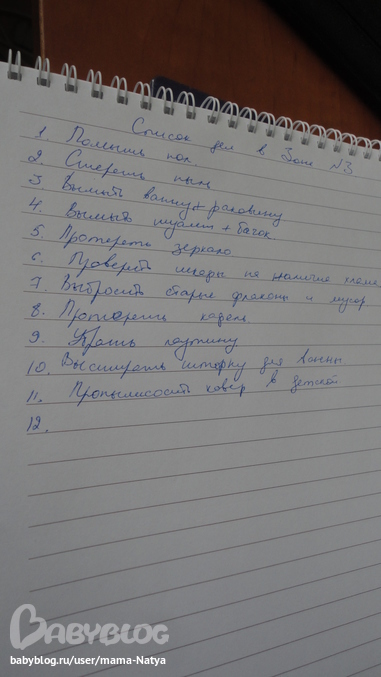 Список дел в Зоне №3
1 Помыть пол
2. Стереть пыль
3. Вымыть ванну + раковину
4. Вымыть туалет + бачок.
5. Протереть зеркало
6. Проверить шкафы на наличие хлама
7. Выбросить старые флаконы и мусор
8. Протереть кафель
9. Убрать паутину
10. Выстирать шторку для ванны
11. Пропылесосить ковер в детской
12.
BABYBLOG
babyblog.ru/user/mama-Natya